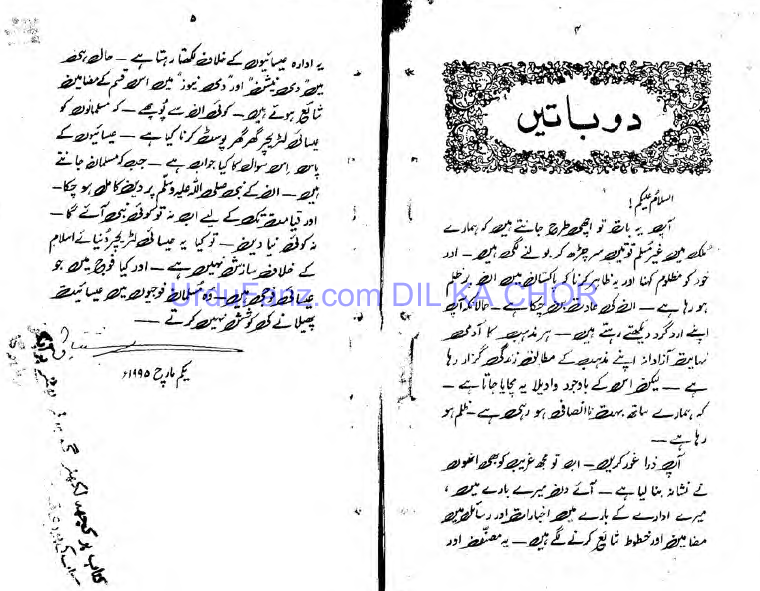 ۴
دو باتیں
السلام علیکم!
آپ یہ بات تو اچھی طرح جانتے ہیں کہ ہمارے
ملک میں غیر مسلم قوتیں سر چڑھ کر بولنے لگی ہیں — اور
خود کو مظلوم کہنا اور یہ ظاہر کرنا کہ پاکستان میں ان پر ظلم
ہو رہا ہے — ان کی عادت بن چکا ہے — حالانکہ آپ
اپنے ارد گرد دیکھتے رہتے ہیں — ہر مذہب کا آدمی
نہایت آزادانہ اپنے مذہب کے مطابق زندگی گزار رہا
ہے — لیکن اس کے باوجود واویلا یہ مچایا جاتا ہے —
کہ ہمارے ساتھ بہت ناانصافی ہو رہی ہے — ظلم ہو
رہا ہے —
آپ ذرا غور کریں — اب تو مجھ غریب کو بھی انھوں
نے نشانہ بنا لیا ہے — آئے دن میرے بارے میں،
میرے ادارے کے بارے میں اخبارات اور رسائل میں
مضامین اور خطوط شائع کرنے لگے ہیں — یہ مصنف اور
۵
یہ ادارہ عیسائیوں کے خلاف لکھتا رہتا ہے — حال ہی
میں "دی نیشن" اور "دی نیوز" میں اس قسم کے مضامین
شائع ہوئے ہیں — کوئی ان سے پوچھے — کہ مسلمانوں کو
عیسائی لٹریچر گھر گھر پوسٹ کرنا کیا ہے — عیسائیوں کے
پاس اس سوال کا کیا جواب ہے — جب کہ مسلمان جانتے
ہیں — ان کے نبی صلی اللہ علیہ وسلم پر دین کامل ہو چکا —
اور قیامت تک کے لیے اب نہ تو کوئی نبی آئے گا —
نہ کوئی نیا دین — تو کیا یہ عیسائی لٹریچر دنیائے اسلام
کے خلاف سازش نہیں ہے — اور کیا فوج میں جو
عیسائی فوجی ہیں — وہ مسلمان فوجیوں میں عیسائیت
پھیلانے کی کوشش نہیں کرتے —
یکم مارچ ۱۹۹۵ء
UrduFanz.com DIL KA CHOR